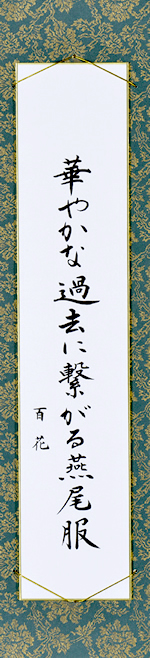 華やかな過去に繋がる燕尾服
百花